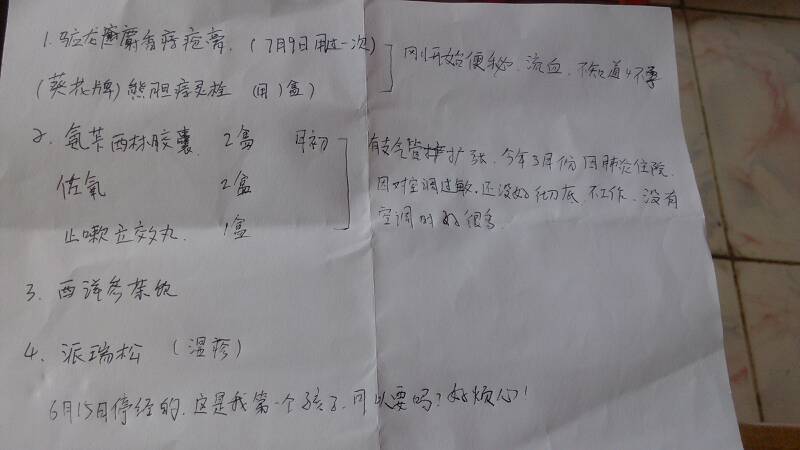 1. 马应龙麝香痔疮膏. (7月9日用过一次)
(葵花牌) 熊胆痔灵栓 (用1盒)
刚开始便秘、流血, 不知道怀孕
2. 氨苄西林胶囊 2盒 月初
佐氧 2盒
止嗽立效丸. 1盒
有支气管扩张. 今年3月份因肺炎住院.
因对空调过敏. 还没好彻底. 不工作. 没有
空调时好很多
3. 西洋参茶饮
4. 派瑞松 (湿疹)
6月15日停经的. 这是我第一个孩子. 可以要吗? 好烦心!